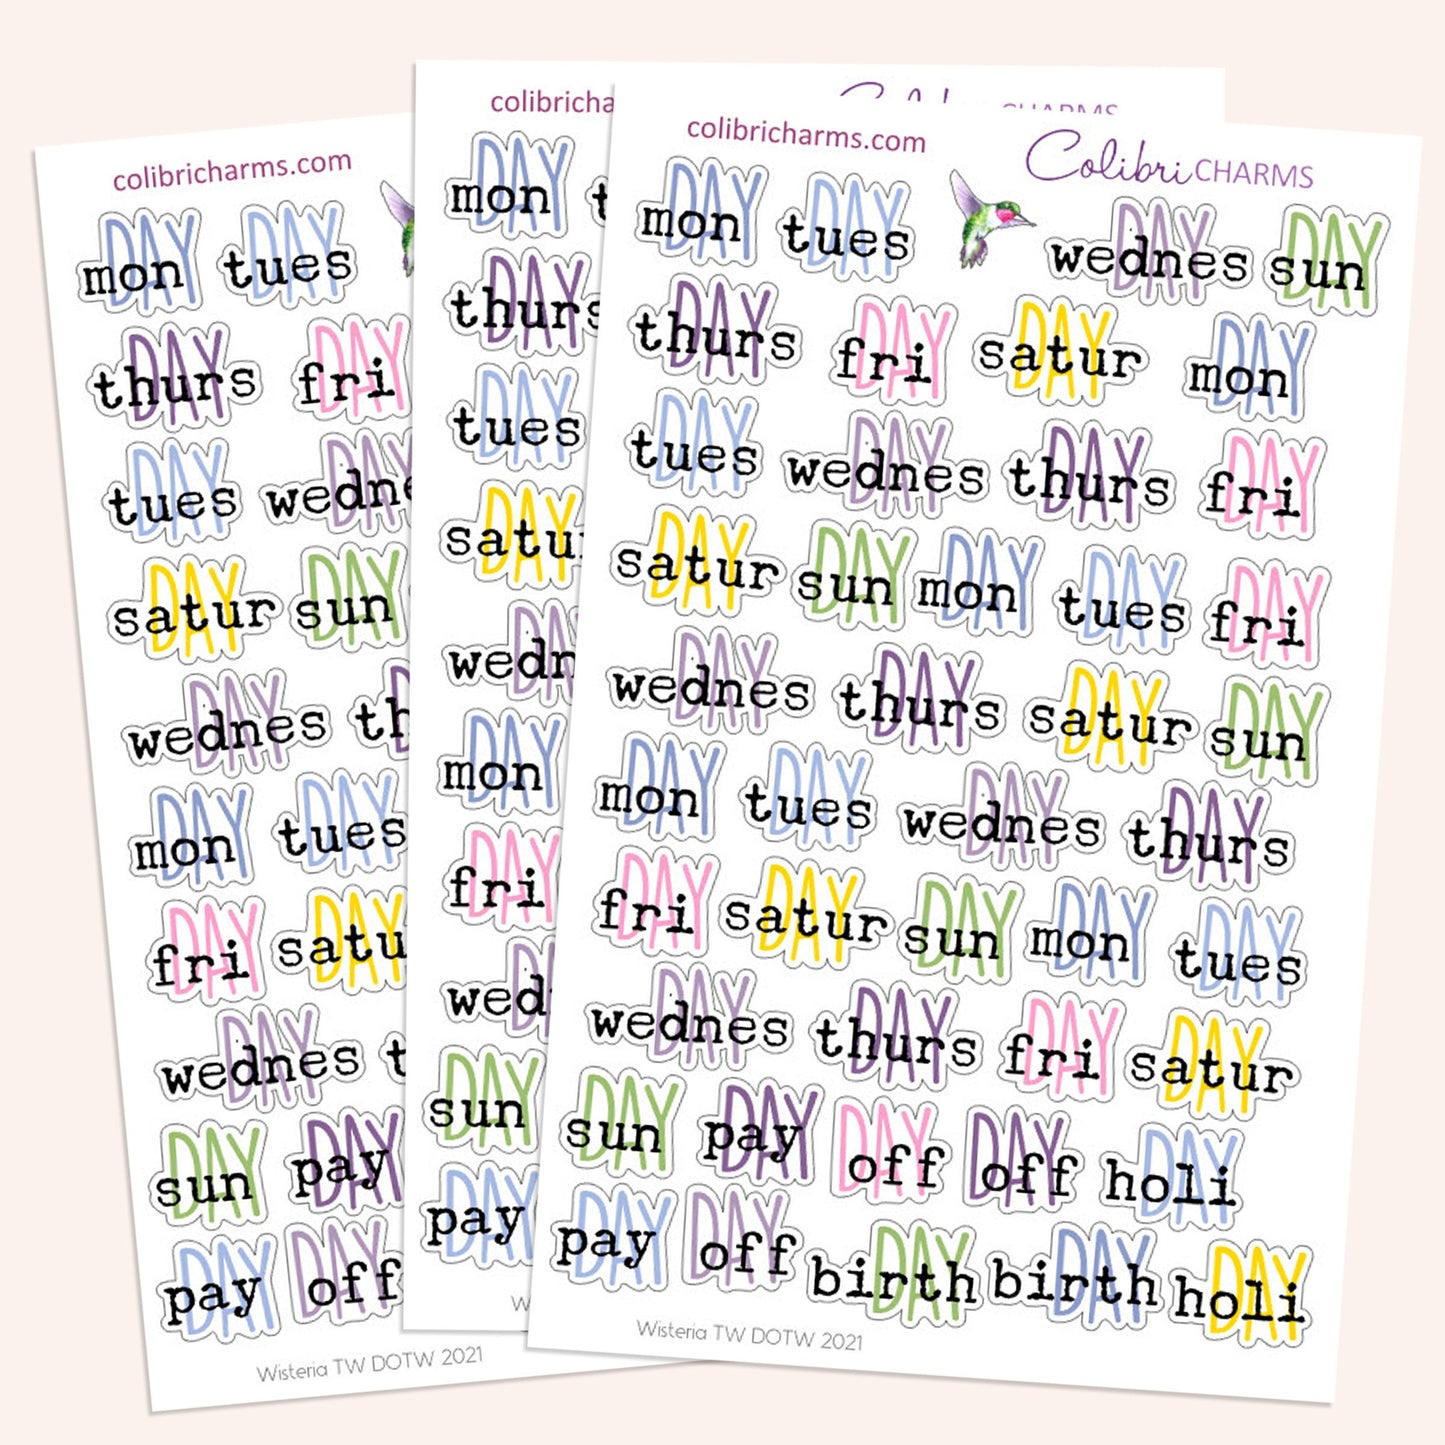 colibricharms.com
DAY mon DAY tues
DAY thurs DAY fri
DAY tues DAY wedne
DAY satur DAY sun
DAY wednes DAY th
DAY mon DAY tues
DAY fri DAY satu
DAY wednes t
DAY sun DAY pay
DAY pay DAY off
Wisteria TW DOTW 2021
colibricha
DAY mon t
DAY thurs
DAY tues
DAY satu
DAY wedn
DAY mon
DAY fri
DAY wed
DAY sun
DAY pay
W
colibricharms.com
Colibri CHARMS
DAY mon DAY tues DAY wednes DAY sun
DAY thurs DAY fri DAY satur DAY mon
DAY tues DAY wednes DAY thurs DAY fri
DAY satur DAY sun DAY mon DAY tues DAY fri
DAY wednes DAY thurs DAY satur DAY sun
DAY mon DAY tues DAY wednes DAY thurs
DAY fri DAY satur DAY sun DAY mon DAY tues
DAY wednes DAY thurs DAY fri DAY satur
DAY sun DAY pay DAY off DAY off DAY holi
DAY pay DAY off DAY birth DAY birth DAY holi
Wisteria TW DOTW 2021